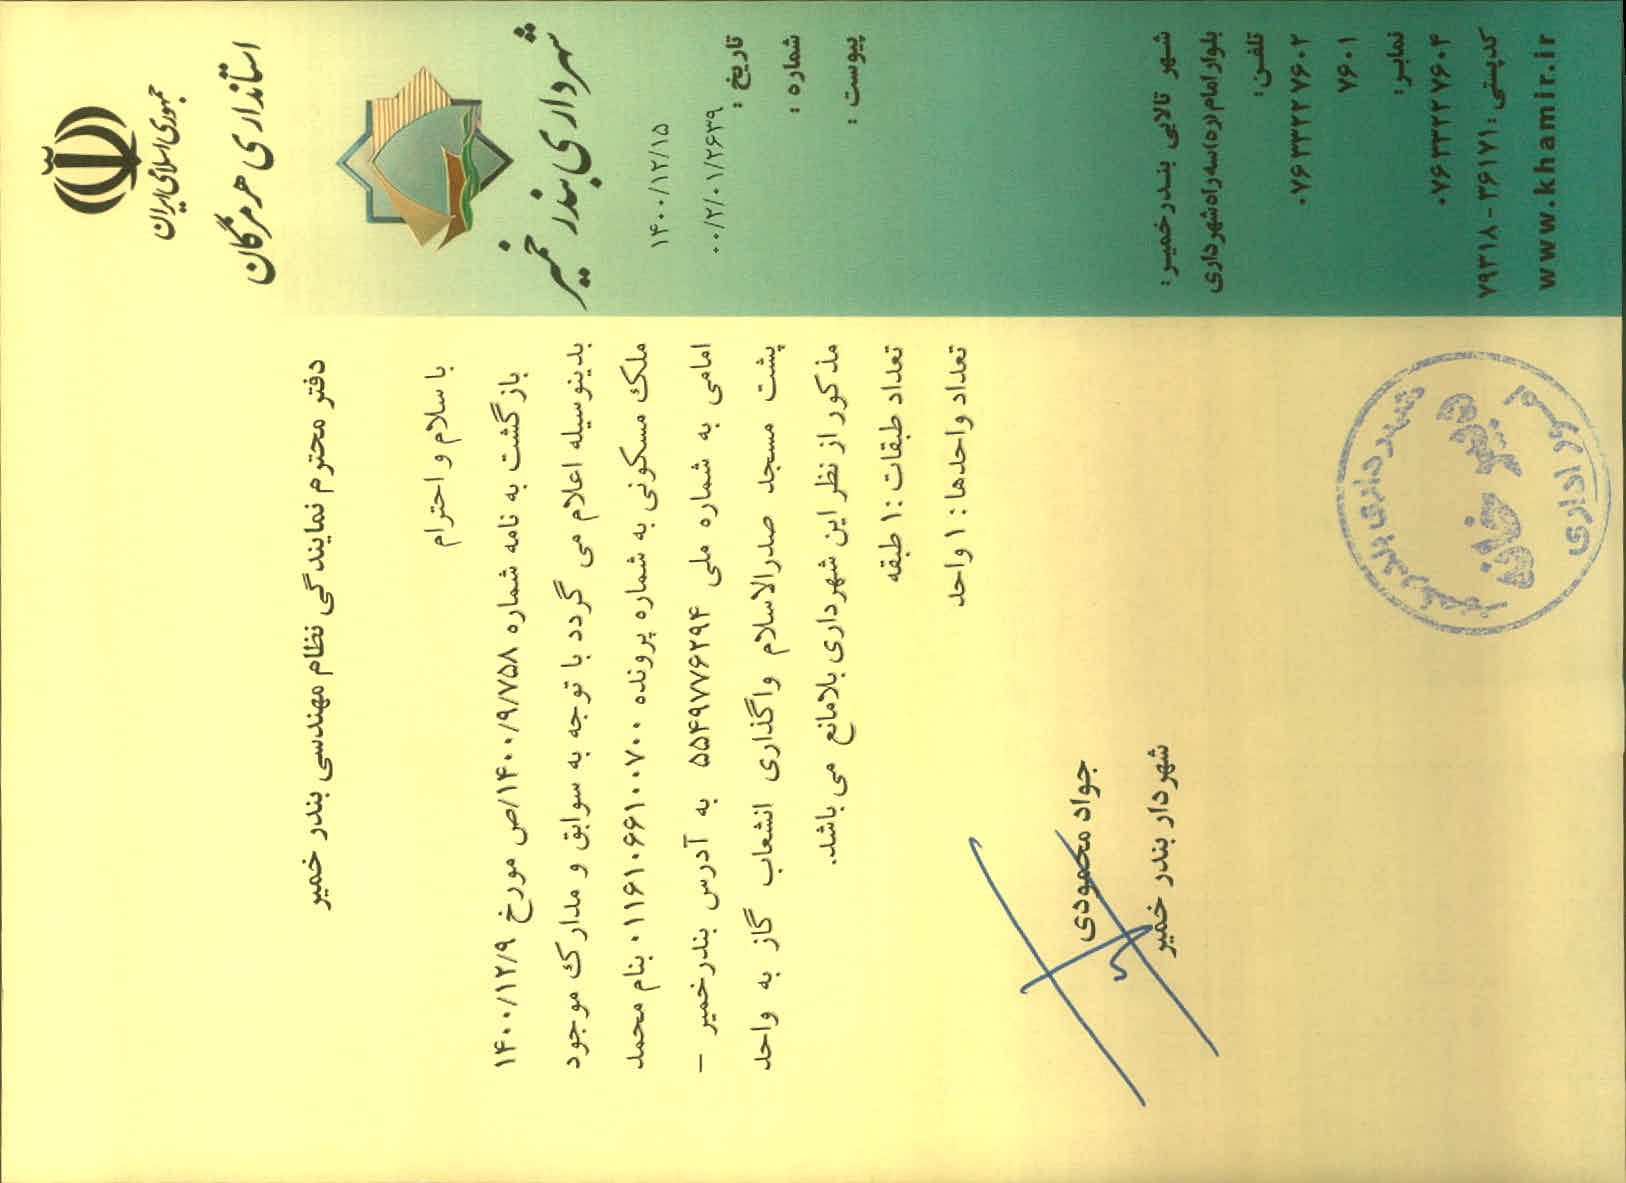 جمهوری اسلامی ایران
استانداری هرمزگان
شهرداری بندر خمیر
۱۴۰۰/۱۲/۱۵
۰۰/۲/۰۱/۲۶۳۹
تاریخ :
شماره :
پیوست :
دفتر محترم نمایندگی نظام مهندسی بندر خمیر
با سلام و احترام
بازگشت به نامه شماره ۱۴۰۰/۹/۷۵۸/ص مورخ ۱۴۰۰/۱۲/۹
بدینوسیله اعلام می گردد با توجه به سوابق و مدارک موجود
ملک مسکونی به شماره پرونده ۰۱۱۶۱۰۶۶۱۰۰۷۰۰ بنام محمد
امامی به شماره ملی ۵۵۴۹۷۷۶۲۹۴ به آدرس بندرخمیر –
پشت مسجد صدرالاسلام واگذاری انشعاب گاز به واحد
مذکور از نظر این شهرداری بلامانع می باشد.
تعداد طبقات :۱ طبقه
تعداد واحدها : ۱ واحد
جواد محمودی
شهردار بندر خمیر
شهرداری بندر خمیر
دبیرخانه
امور اداری
شهر تالابی بندرخمیر:
بلوار امام (ره) سه راه شهرداری
تلفن:
۰۷۶۳۳۲۲۷۶۰۲
۷۶۰۱
نمابر:
۰۷۶۳۳۲۲۷۶۰۴
کدپستی : ۳۶۱۷۱ - ۷۹۳۱۸
www.khamir.ir